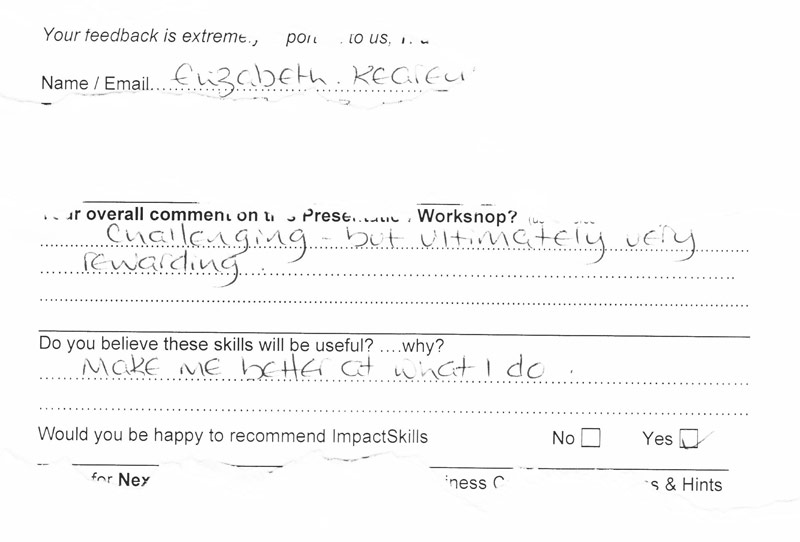 Your feedback is to us,
Name / Email Elizabeth.
overall comment on Workshop?
Challenging - but ultimately very
rewarding.
Do you believe these skills will be useful? ....why?
Make me better at what I do.
Would you be happy to recommend ImpactSkills No Yes
for & Hints